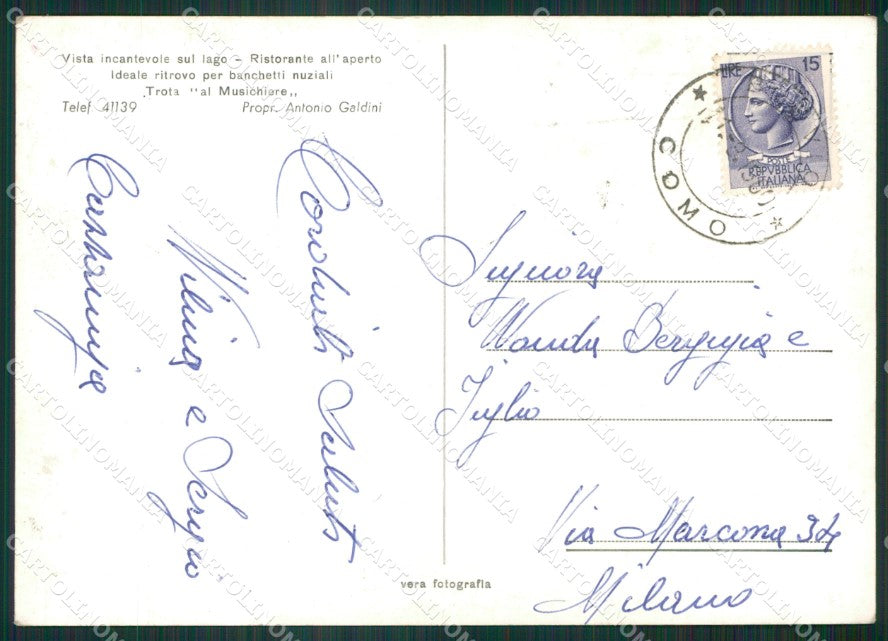 Vista incantevole sul lago - Ristorante all'aperto
Ideale ritrovo per banchetti nuziali
Trota "al Musichiere,,
Telef. 41139 Propr. Antonio Galdini
Cordiali Saluti
Wilma e Sergio
LIRE 15
POSTE
REPVBBLICA
ITALIANA
COMO
Signora
Wanda e
Figlio
Via Marcona 34
Milano
vera fotografia
CARTOLINOMANIA